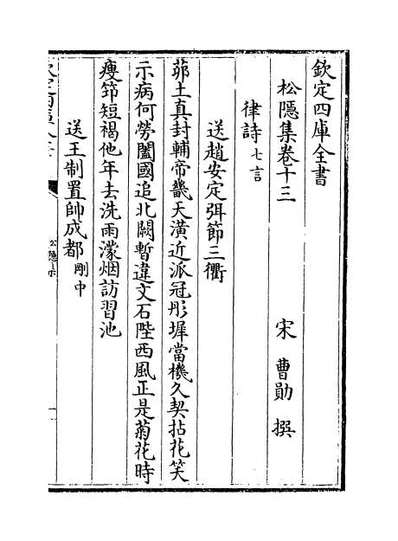 欽定四庫全書
松隱集卷十三
宋 曹勛 撰
律詩七言
送趙安定弭節三衢
茆土真封輔帝畿天潢近派冠彤墀當機久契拈花笑
示病何勞闔國追北闕暫違文石陛西風正是菊花時
瘦筇短褐他年去洗雨濛烟訪習池
送王制置帥成都剛中
松隱集
一